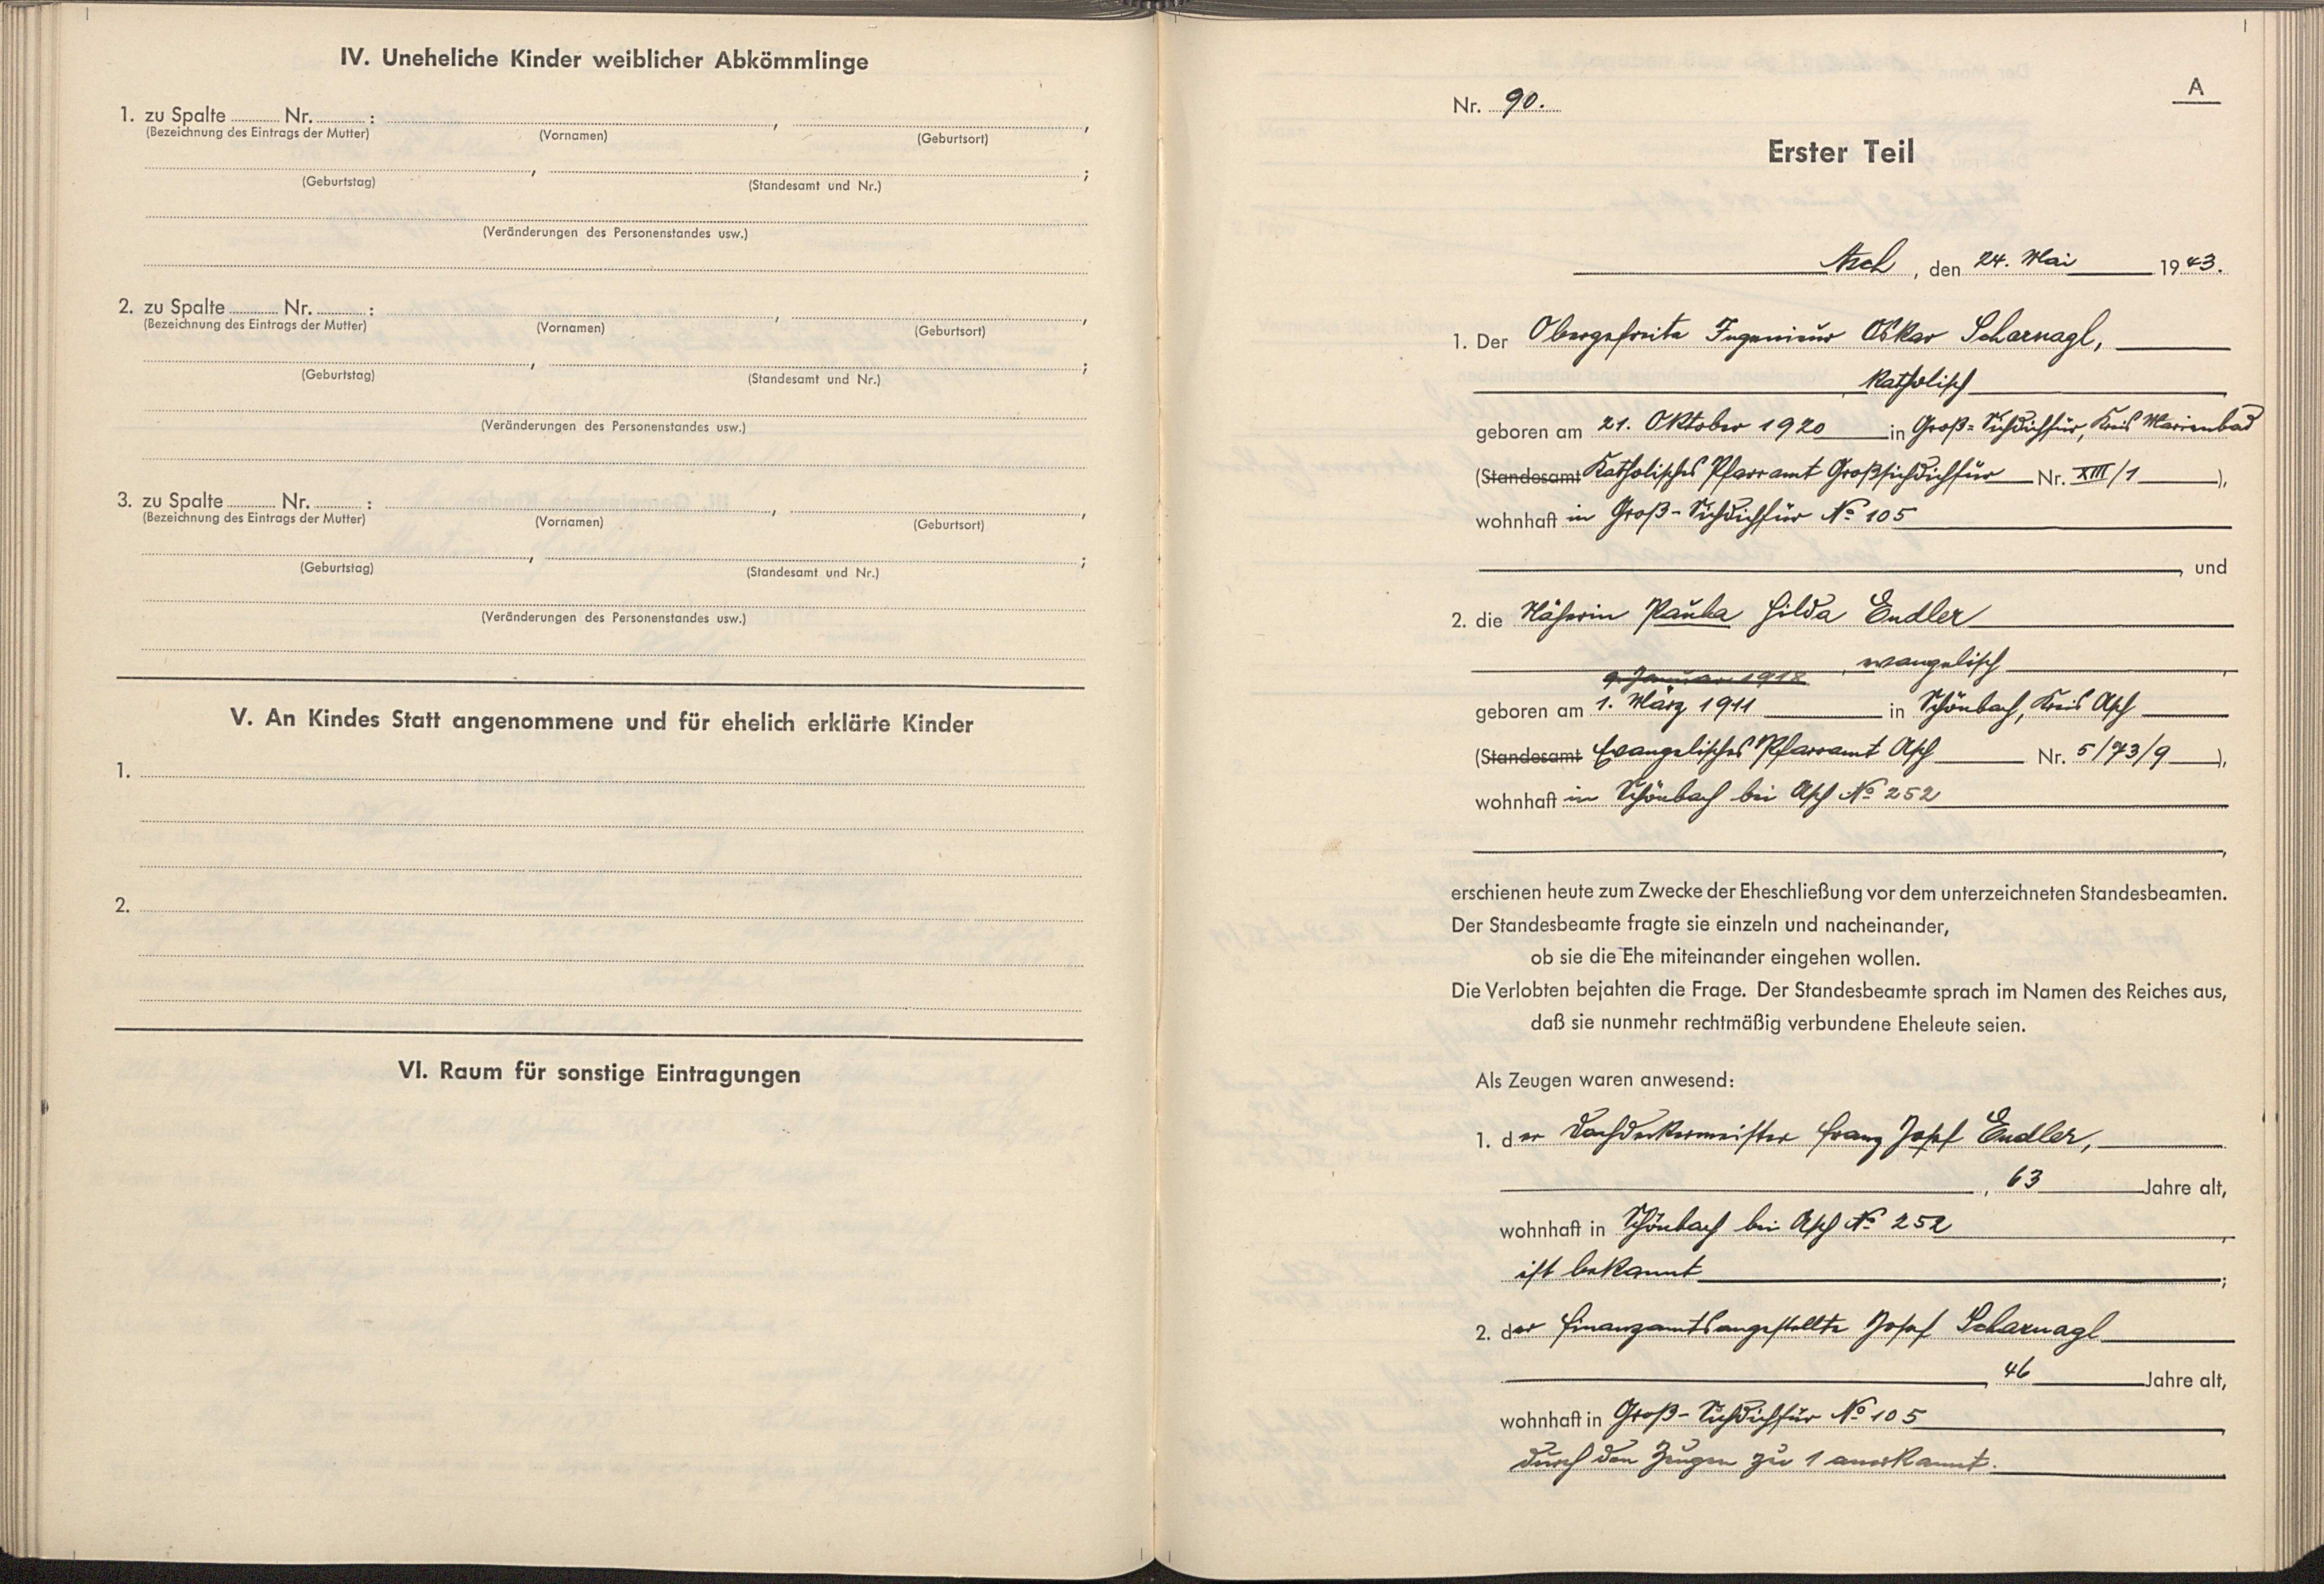 IV. Uneheliche Kinder weiblicher Abkömmlinge
1. zu Spalte Nr. :
(Bezeichnung des Eintrags der Mutter) (Vornamen) , (Geburtsort) ,
(Geburtstag) , (Standesamt und Nr.) ;
(Veränderungen des Personenstandes usw.)
2. zu Spalte Nr. :
(Bezeichnung des Eintrags der Mutter) (Vornamen) , (Geburtsort) ,
(Geburtstag) , (Standesamt und Nr.) ;
(Veränderungen des Personenstandes usw.)
3. zu Spalte Nr. :
(Bezeichnung des Eintrags der Mutter) (Vornamen) , (Geburtsort) ,
(Geburtstag) , (Standesamt und Nr.) ;
(Veränderungen des Personenstandes usw.)
V. An Kindes Statt angenommene und für ehelich erklärte Kinder
1.
2.
VI. Raum für sonstige Eintragungen
A
Nr. 90.
Erster Teil
Asch, den 24. Mai 1943.
1. Der Obergefreite Ingenieur Oskar Scharnagl,
, katholisch
geboren am 21. Oktober 1920 in Groß-Sichdichfür, Kreis Marienbad
(Standesamt Katholisches Pfarramt Großsichdichfür Nr. XIII/1 ),
wohnhaft in Groß-Sichdichfür No 105
, und
2. die Näherin Paula Hilda Endler
, evangelisch ,
9. Januar 1918
geboren am 1. März 1911 in Schönbach, Kreis Asch
(Standesamt Evangelisches Pfarramt Asch Nr. 5/73/9 ),
wohnhaft in Schönbach bei Asch No 252
,
erschienen heute zum Zwecke der Eheschließung vor dem unterzeichneten Standesbeamten.
Der Standesbeamte fragte sie einzeln und nacheinander,
ob sie die Ehe miteinander eingehen wollen.
Die Verlobten bejahten die Frage. Der Standesbeamte sprach im Namen des Reiches aus,
daß sie nunmehr rechtmäßig verbundene Eheleute seien.
Als Zeugen waren anwesend:
1. der Dachdeckermeister Franz Josef Endler,
, 63 Jahre alt,
wohnhaft in Schönbach bei Asch No 252 ,
ist bekannt ;
2. der Finanzamtsangestellte Josef Scharnagl
, 46 Jahre alt,
wohnhaft in Groß-Sichdichfür No 105 ,
durch den Zeugen zu 1 anerkannt.